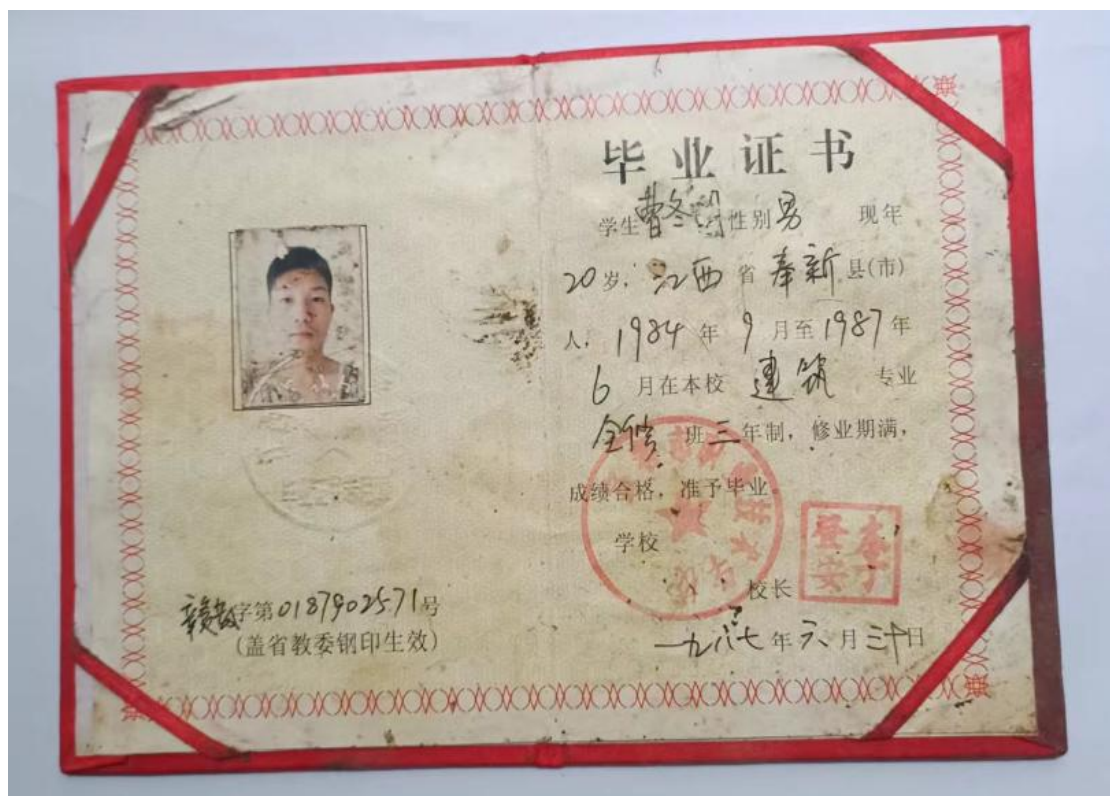 毕业证书
学生曹冬 性别男 现年
20岁,江西省奉新县(市)
人,1984年9月至1987年
6月在本校建筑专业
全修班三年制,修业期满,
成绩合格,准予毕业
学校
校长
一九八七年六月三十日
赣教字第0187902571号
(盖省教委钢印生效)